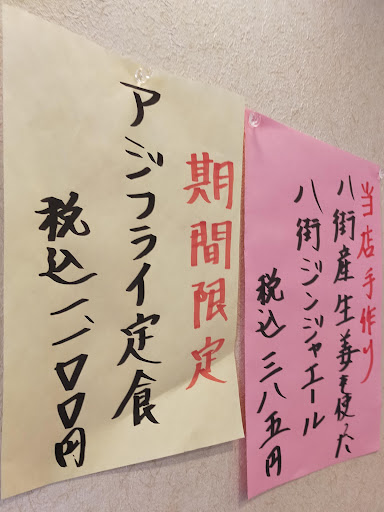 当店手作り
八街産生姜を使った
八街ジンジャエール
税込三八五円
期間限定
アジフライ定食
税込一、一〇〇円